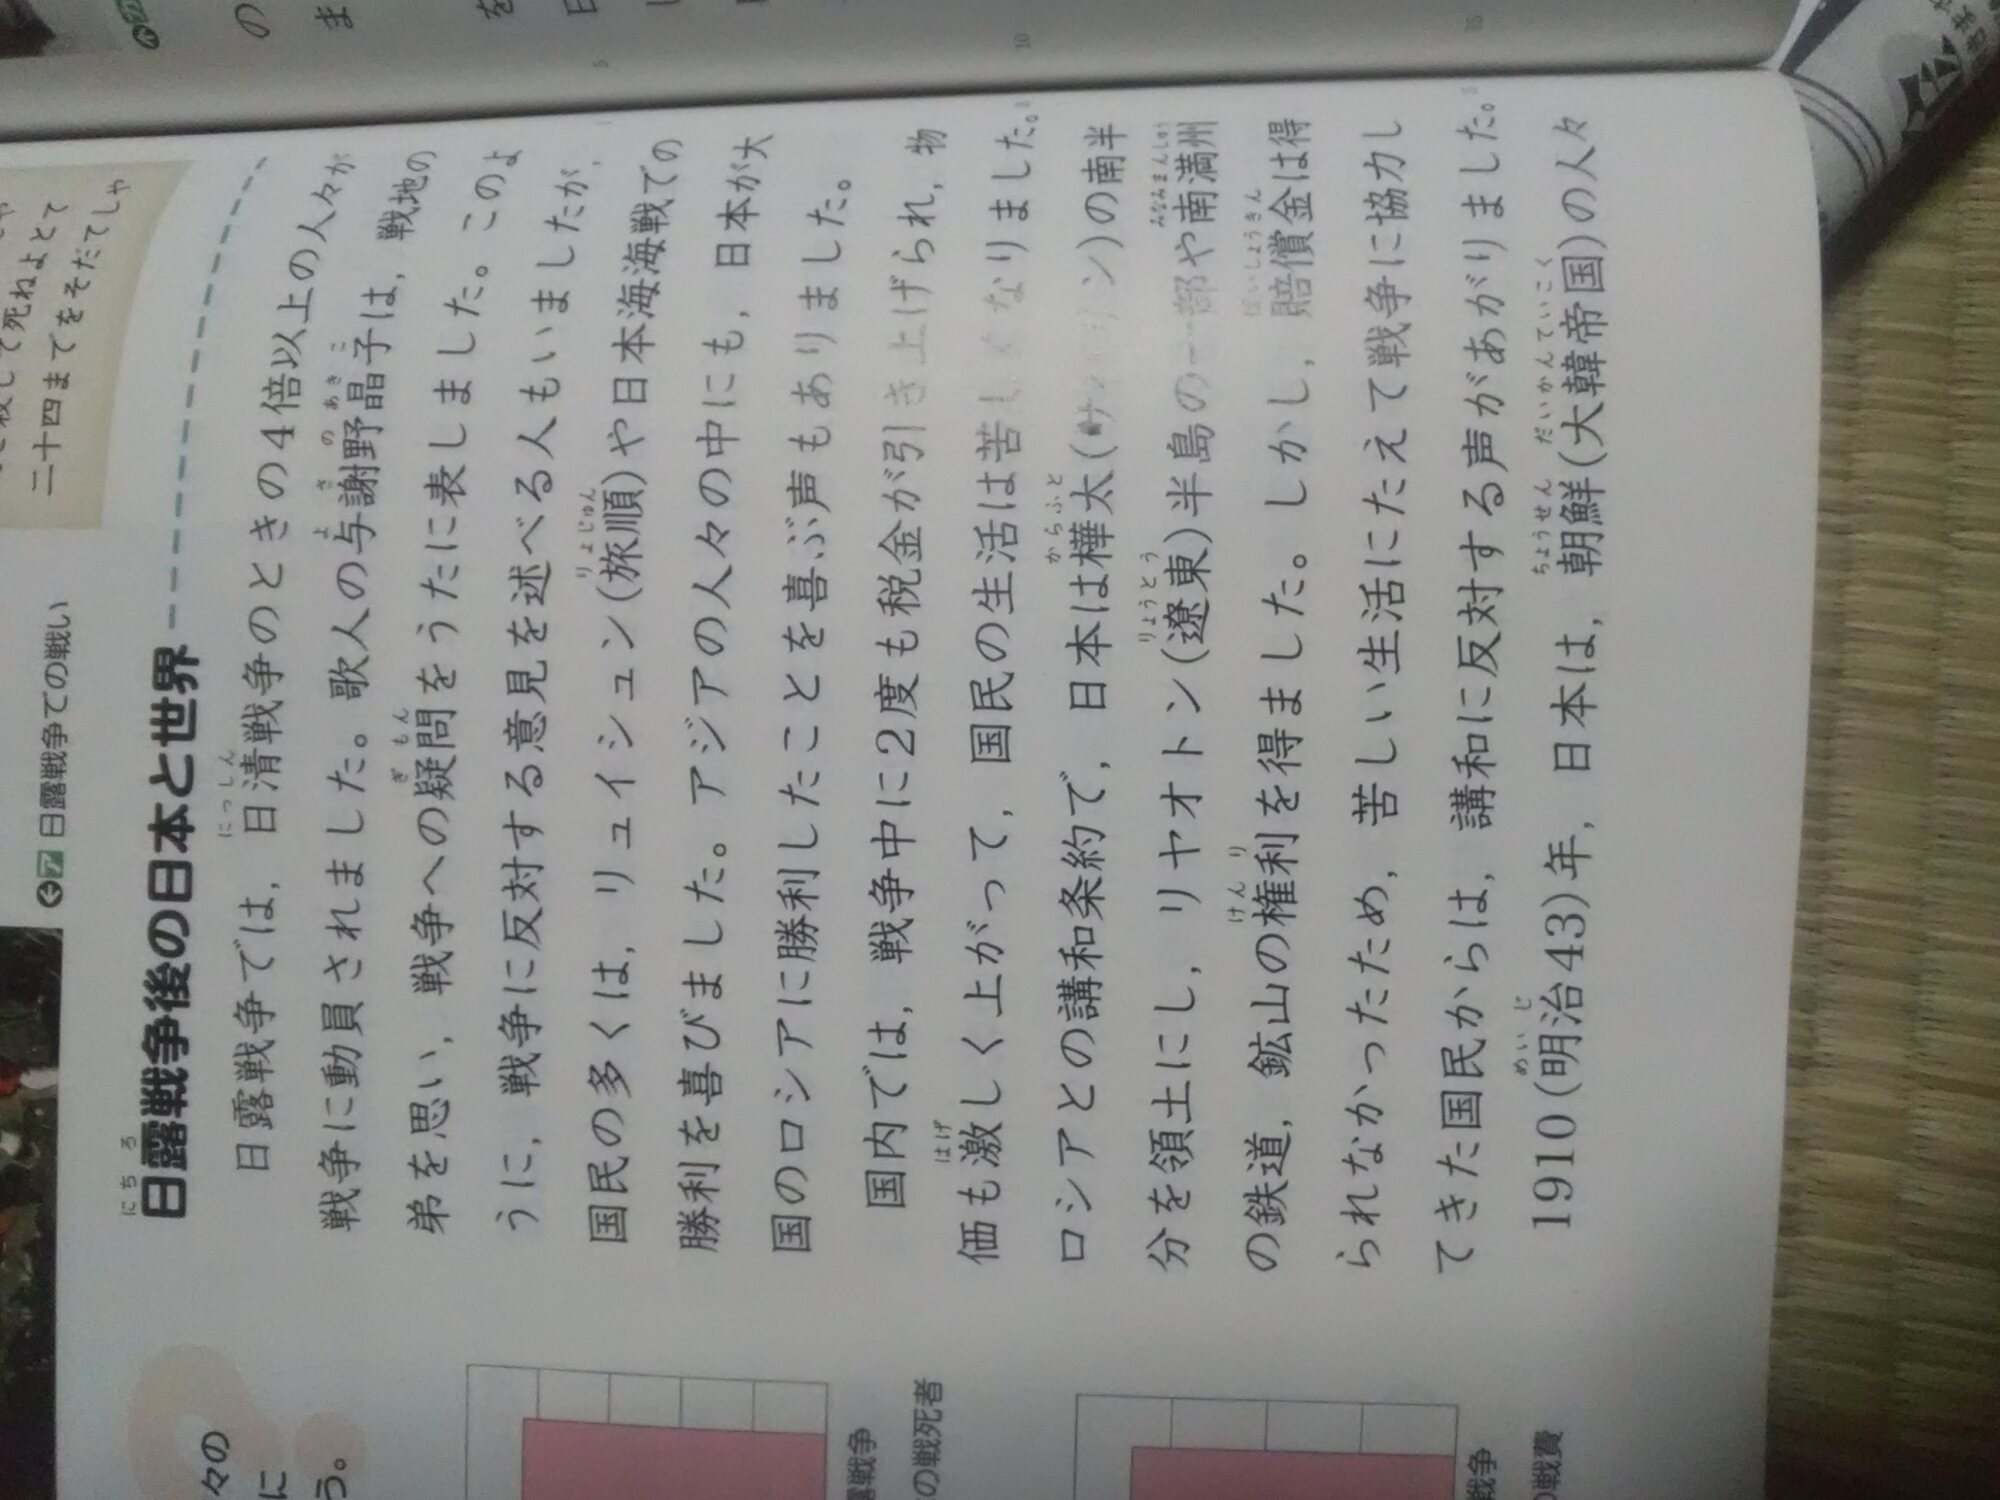 二十四までをそだてしや
ア 日露戦争での戦い
日露戦争後の日本と世界
にちろ
日露戦争では，日清戦争のときの4倍以上の人々が
にっしん
戦争に動員されました。歌人の与謝野晶子は，戦地の
よさのあきこ
弟を思い，戦争への疑問をうたに表しました。このよ
ぎもん
うに，戦争に反対する意見を述べる人もいましたが，
国民の多くは，リュイシュン(旅順)や日本海海戦での
りょじゅん
勝利を喜びました。アジアの人々の中にも，日本が大
国のロシアに勝利したことを喜ぶ声もありました。
国内では，戦争中に2度も税金が引き上げられ，物
価も激しく上がって，国民の生活は苦しくなりました。
はげ
ロシアとの講和条約で，日本は樺太(サハリン)の南半
からふと
分を領土にし，リヤオトン(遼東)半島の一部や南満州
りょうとう
みなみまんしゅう
の鉄道，鉱山の権利を得ました。しかし，賠償金は得
けんり
ばいしょうきん
られなかったため，苦しい生活にたえて戦争に協力し
てきた国民からは，講和に反対する声があがりました。
1910(明治43)年，日本は，朝鮮(大韓帝国)の人々
めいじ
ちょうせん
だいかんていこく
5
10
15
々の
に
う。
露戦争
の戦死者
戦争
の戦費